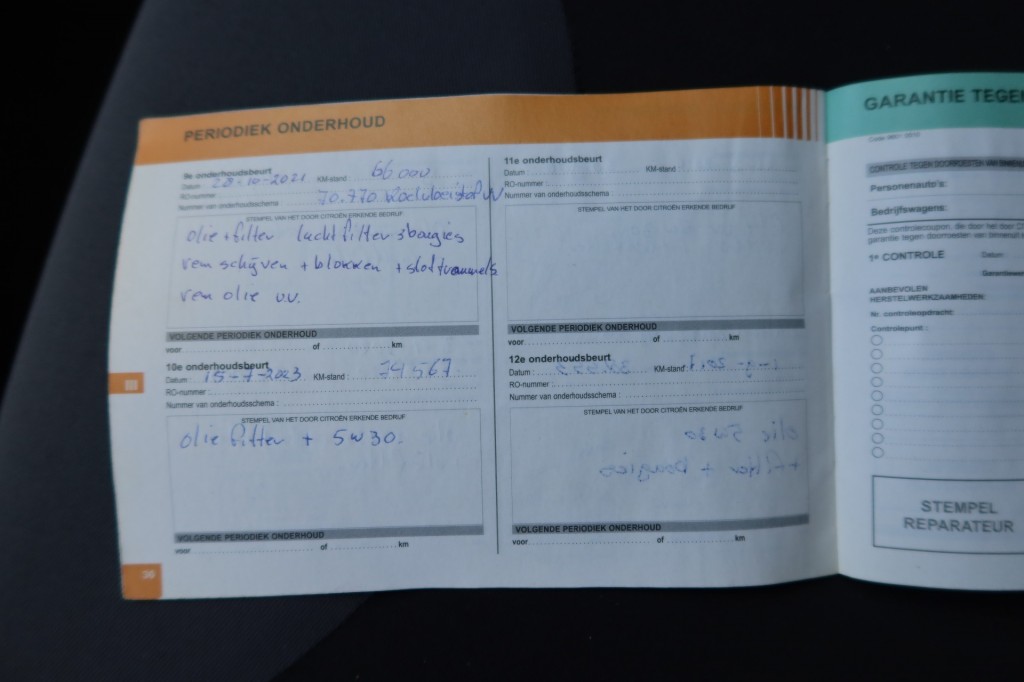 PERIODIEK ONDERHOUD
9e onderhoudsbeurt
Datum : 28-10-2021 KM-stand : 66000
RO-nummer :
Nummer van onderhoudsschema : 70.770
STEMPEL VAN HET DOOR CITROËN ERKENDE BEDRIJF
olie + filter lucht filter bougies
rem schijven + blokken +
rem olie v.v.
VOLGENDE PERIODIEK ONDERHOUD
voor of km
10e onderhoudsbeurt
Datum : 15-7-2023 KM-stand : 74567
RO-nummer :
Nummer van onderhoudsschema :
STEMPEL VAN HET DOOR CITROËN ERKENDE BEDRIJF
olie filter + 5W30.
VOLGENDE PERIODIEK ONDERHOUD
voor of km
11e onderhoudsbeurt
Datum : KM-stand :
RO-nummer :
Nummer van onderhoudsschema :
STEMPEL VAN HET DOOR CITROËN ERKENDE BEDRIJF
VOLGENDE PERIODIEK ONDERHOUD
voor of km
12e onderhoudsbeurt
Datum : KM-stand :
RO-nummer :
Nummer van onderhoudsschema :
STEMPEL VAN HET DOOR CITROËN ERKENDE BEDRIJF
VOLGENDE PERIODIEK ONDERHOUD
voor of km
GARANTIE TEGE
CONTROLE TEGEN DOORROESTEN VAN
Personenauto's:
Bedrijfswagens:
Deze controlecoupon, die door het door
garantie tegen doorroesten van binnenuit
1e CONTROLE Datum
AANBEVOLEN
HERSTELWERKZAAMHEDEN:
Nr. controleopdracht:
Controlepunt :
STEMPEL
REPARATEUR